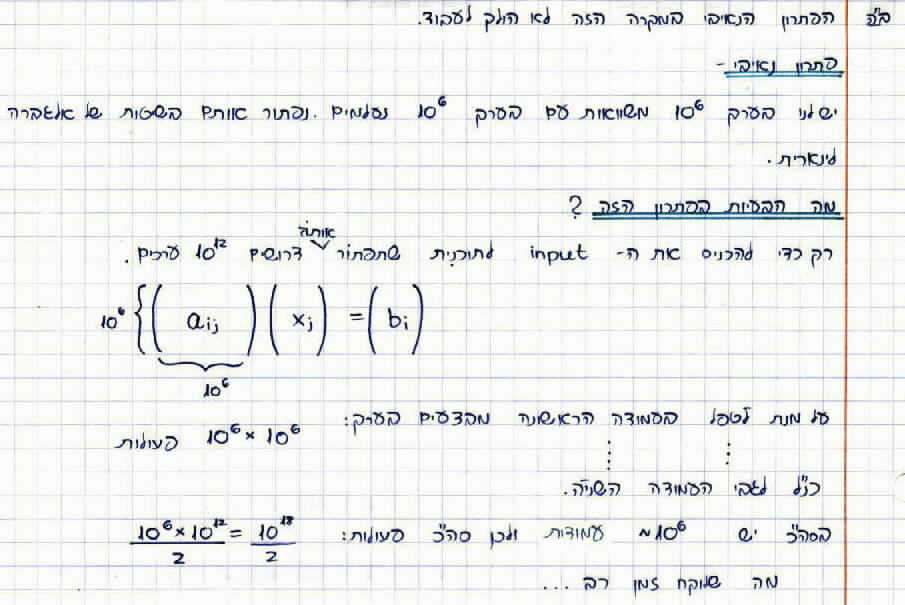 ב"ה
הפתרון הנאיבי במקרה הזה לא הולך לעבוד.
פתרון נאיבי -
יש לנו בערך 10⁶ משוואות עם בערך 10⁶ נעלמים. נפתור אותם בשיטות של אלגברה
לינארית.
מה הבעיות בפתרון הזה?
רק כדי להכניס את ה- input לתוכנית שתפתור אותה דרושים 10¹² ערכים.
10⁶ { ( aij ) ( xj ) = ( bi )
10⁶
על מנת לטפל בעמודה הראשונה מבצעים בערך: 10⁶ × 10⁶ פעולות
כנ"ל לגבי העמודה השניה.
בסה"כ יש ~10⁶ עמודות ולכן סה"כ פעולות: 10⁶ × 10¹² / 2 = 10¹⁸ / 2
מה שלוקח זמן רב ...